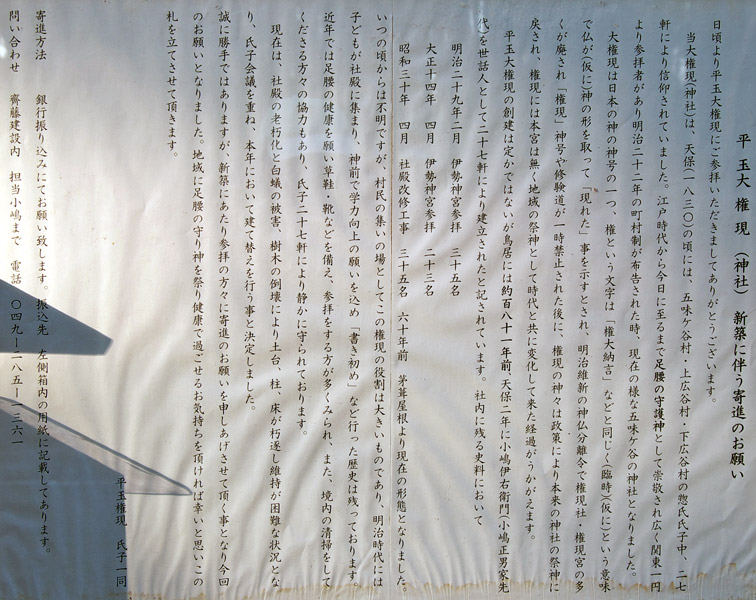 平玉大権現（神社）新築に伴う寄進のお願い
日頃より平玉大権現にご参拝いただきましてありがとうございます。
当大権現(神社)は、天保(一八三〇)の頃には、五味ケ谷村・上広谷村・下広谷村の惣氏氏子中、二七
軒により信仰されていました。江戸時代から今日に至るまで足腰の守護神として崇敬され広く関東一円
より参拝者があり明治二十二年の町村制が布告された時、現在の様な五味ケ谷の神社となりました。
大権現は日本の神の神号の一つ、権という文字は「権大納言」などと同じく(臨時)(仮に)という意味
で仏が(仮に)神の形を取って「現れた」事を示すとされ、明治維新の神仏分離令で権現社・権現宮の多
くが廃され「権現」神号や修験道が一時禁止された後に、権現の神々は政策により本来の神社の祭神に
戻され、権現には本宮は無く地域の祭神として時代と共に変化して来た経過がうかがえます。
平玉大権現の創建は定かではないが鳥居には約百八十一年前、天保二年に小嶋伊右衛門(小嶋正男家先
代)を世話人として二十七軒により建立されたと記されています。社内に残る史料において
明治二十九年二月　伊勢神宮参拝　三十五名
大正十四年　四月　伊勢神宮参拝　二十三名
昭和三十年　四月　社殿改修工事　三十五名　六十年前　茅葺屋根より現在の形態となりました。
いつの頃からは不明ですが、村民の集いの場としてこの権現の役割は大きいものであり、明治時代には
子どもが社殿に集まり、神前で学力向上の願いを込め「書き初め」など行った歴史は残っております。
近年では足腰の健康を願い草鞋・靴などを備え、参拝をする方が多くみられ、また、境内の清掃をして
くださる方々の協力もあり、氏子二十七軒により静かに守られております。
現在は、社殿の老朽化と白蟻の被害、樹木の倒壊により土台、柱、床が朽逐し維持が困難な状況とな
り、氏子会議を重ね、本年において建て替えを行う事と決定しました。
誠に勝手ではありますが、新築にあたり参拝の方々に寄進のお願いを申しあげさせて頂く事となり今回
のお願いとなりました。地域に足腰の守り神を祭り健康で過ごせるお気持ちを頂ければ幸いと思いこの
札を立てさせて頂きます。
平玉権現　氏子一同
寄進方法　銀行振り込みにてお願い致します。振込先　左側箱内の用紙に記載してあります。
問い合わせ　齊藤建設内　担当小嶋まで　電話　〇四九ー二八五ー一三六一